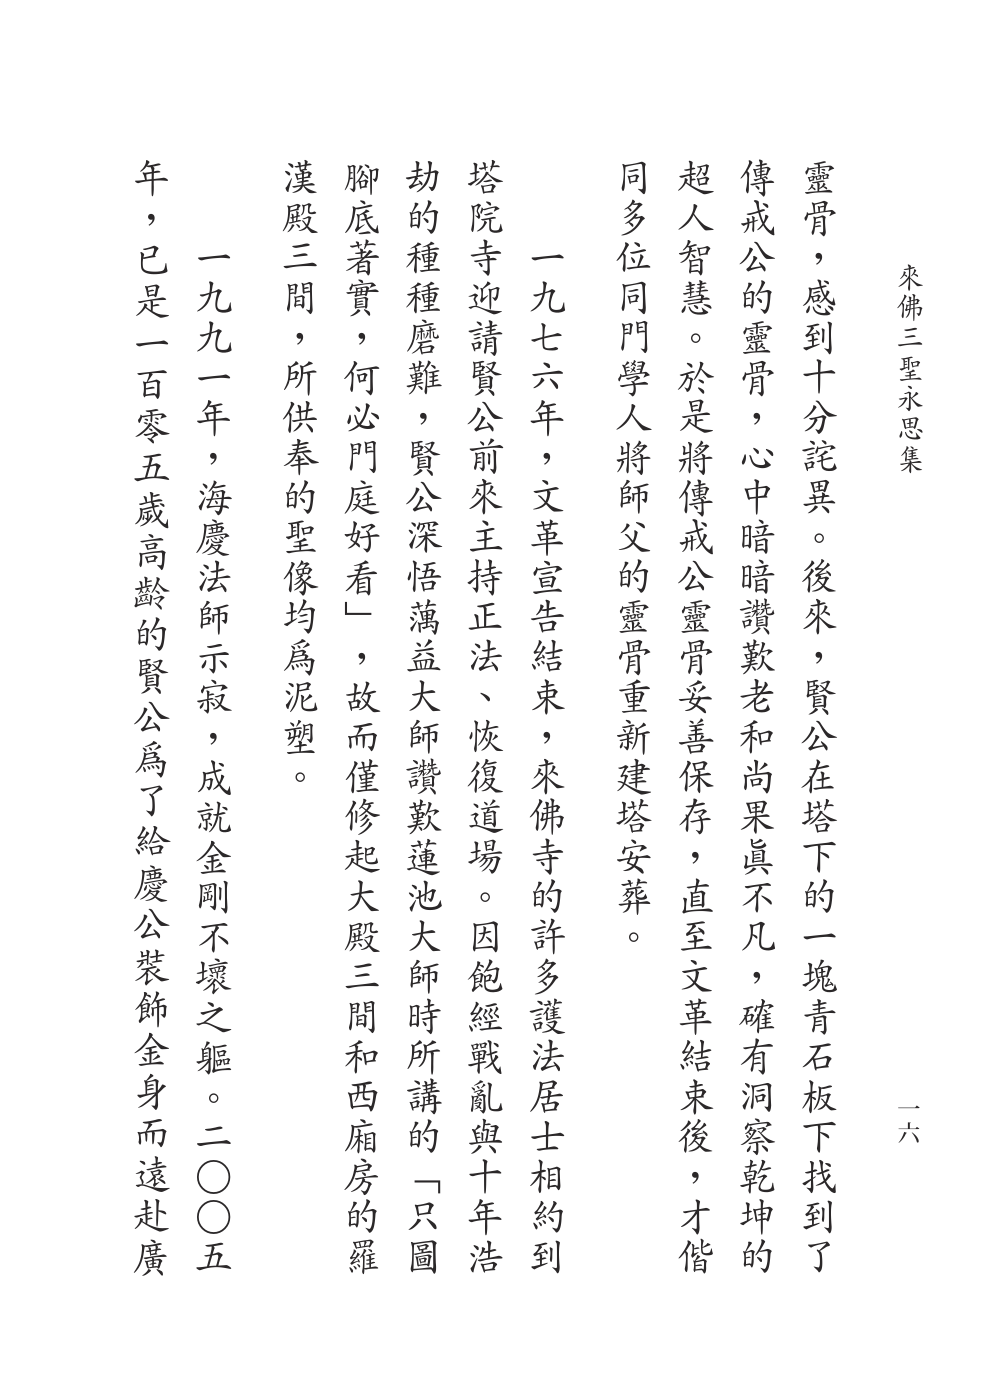 來佛三聖永思集
一六
靈骨，感到十分詫異。後來，賢公在塔下的一塊青石板下找到了
傳戒公的靈骨，心中暗暗讚歎老和尚果眞不凡，確有洞察乾坤的
超人智慧。於是將傳戒公靈骨妥善保存，直至文革結束後，才偕
同多位同門學人將師父的靈骨重新建塔安葬。
一九七六年，文革宣告結束，來佛寺的許多護法居士相約到
塔院寺迎請賢公前來主持正法、恢復道場。因飽經戰亂與十年浩
劫的種種磨難，賢公深悟蕅益大師讚歎蓮池大師時所講的「只圖
腳底著實，何必門庭好看」，故而僅修起大殿三間和西廂房的羅
漢殿三間，所供奉的聖像均爲泥塑。
一九九一年，海慶法師示寂，成就金剛不壞之軀。二〇〇五
年，已是一百零五歲高齡的賢公爲了給慶公裝飾金身而遠赴廣